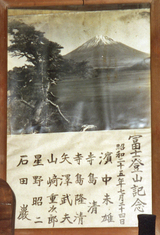 富士登山記念
昭和二十五年七月二十四日
濱中末雄
寺島清
寺島隆清
矢澤武夫
山崎重次郎
星野昭二
石田巌